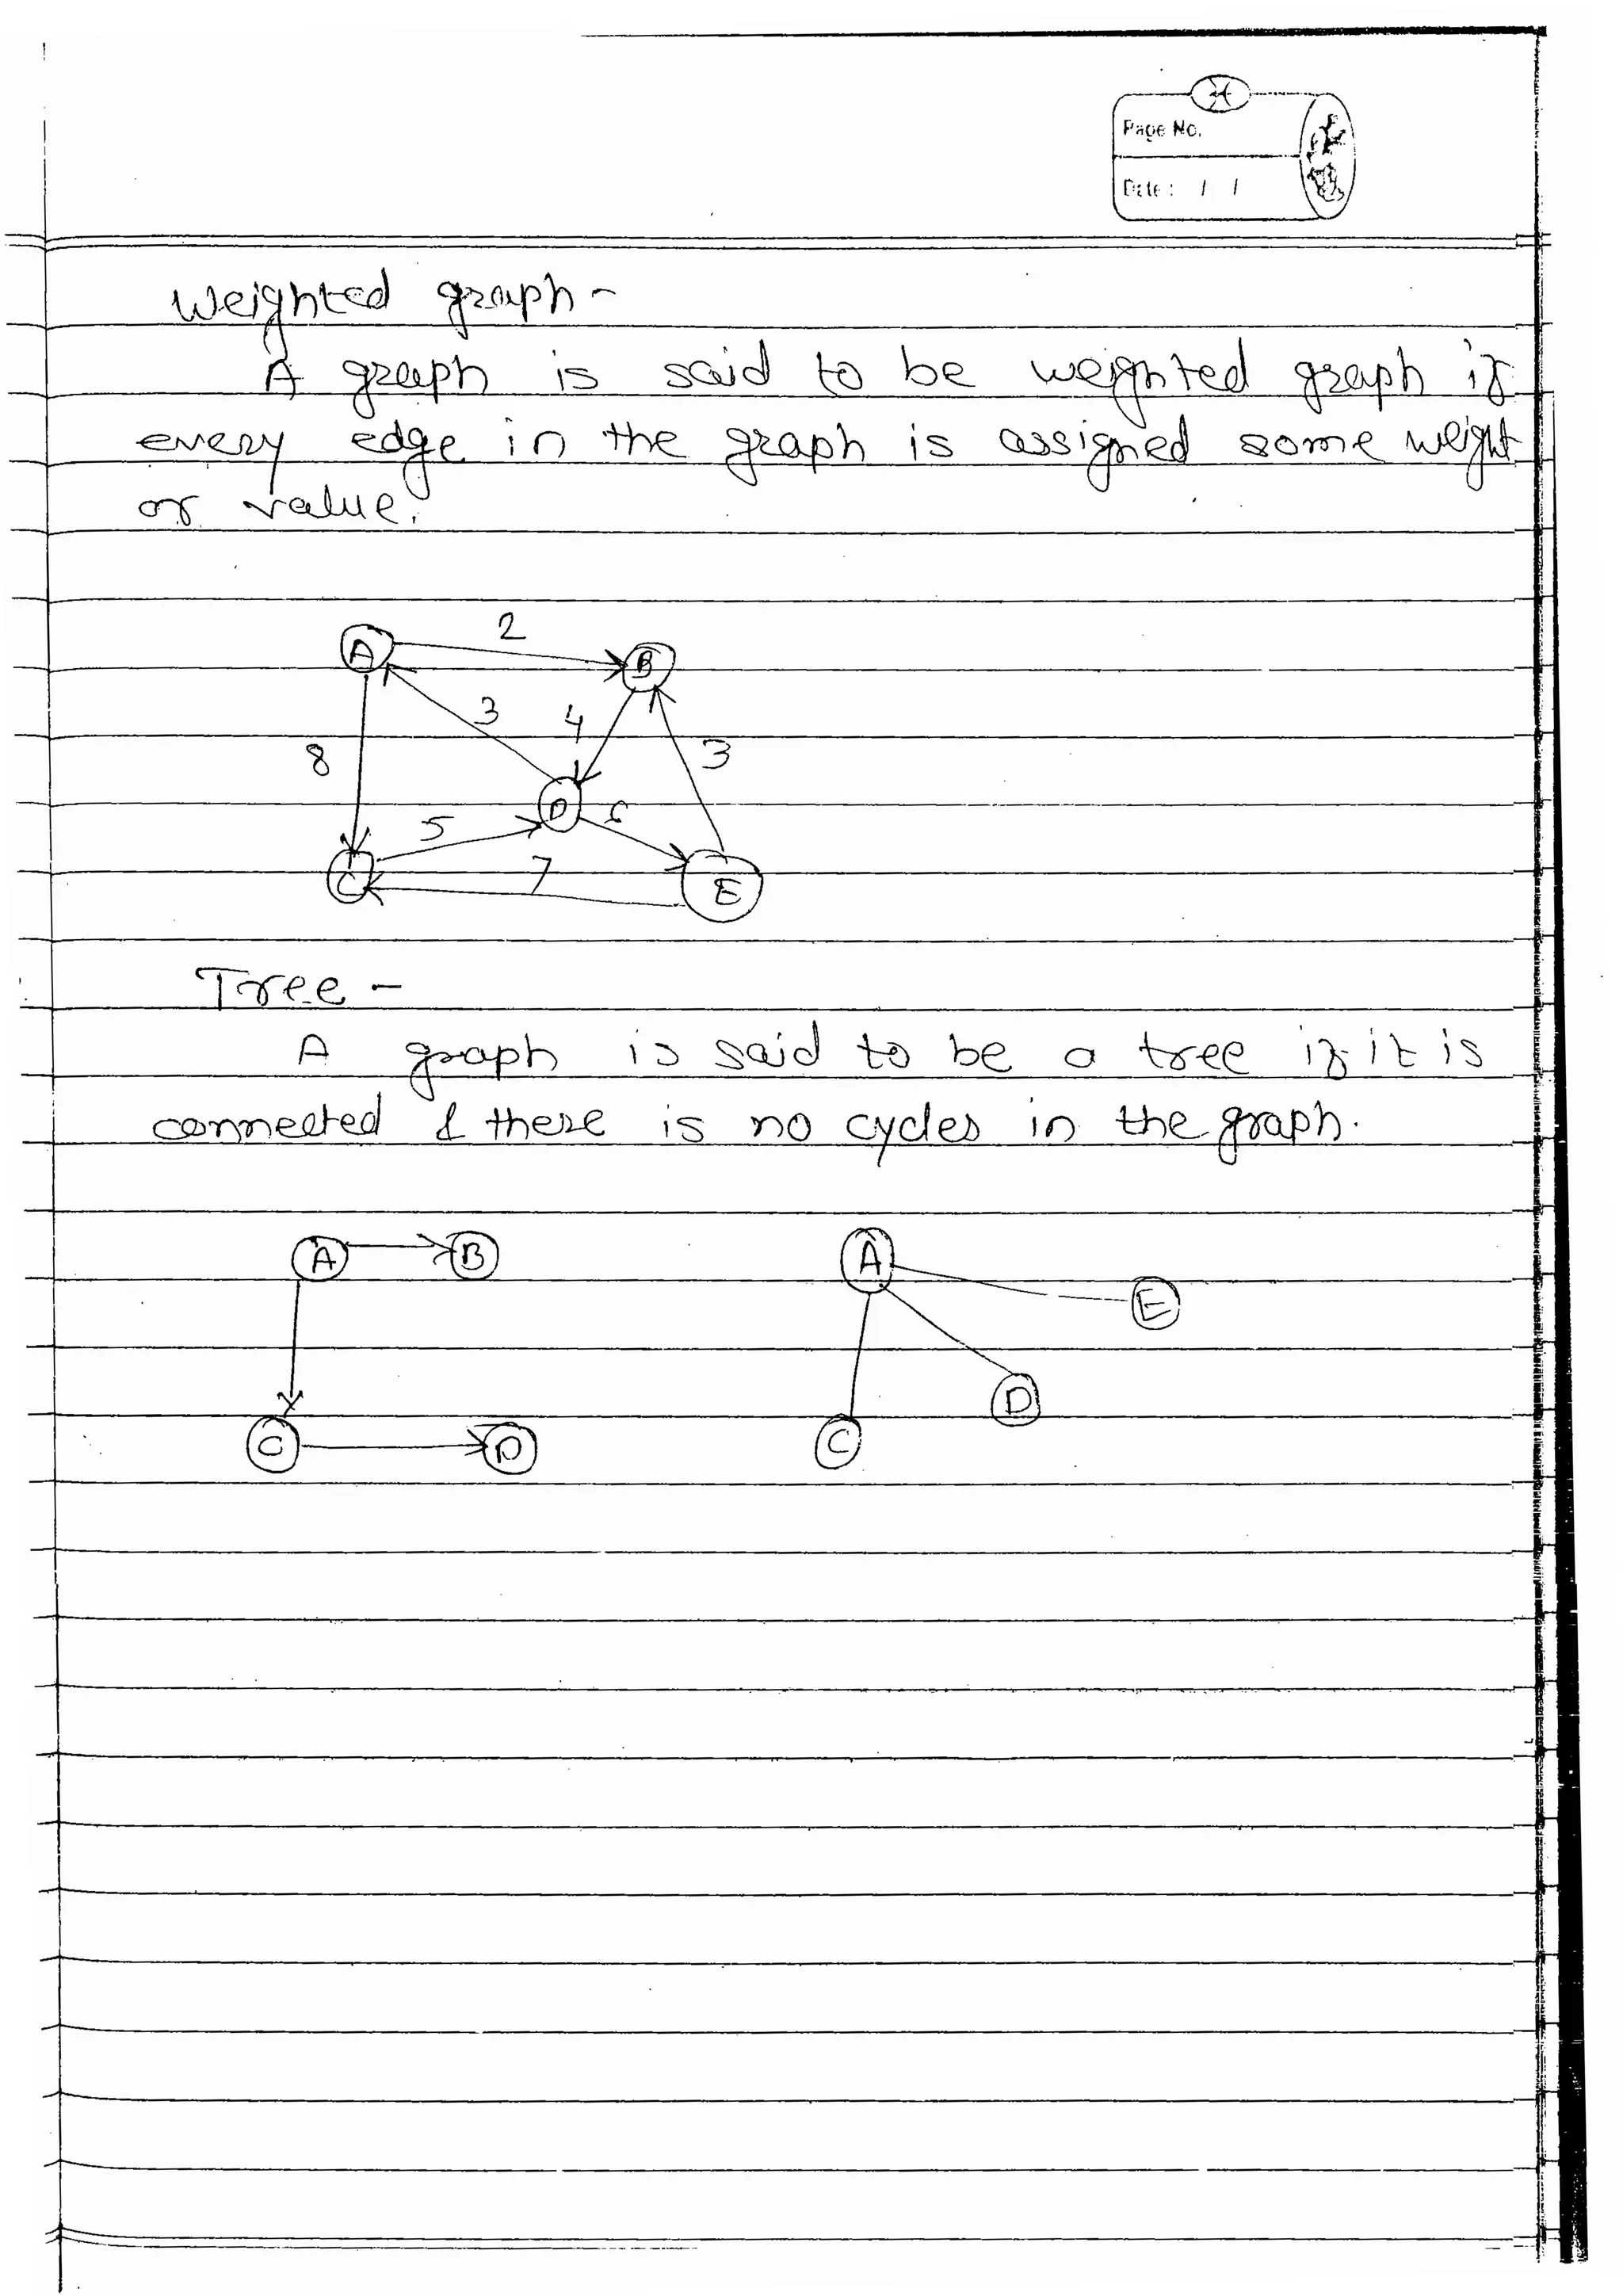 Page No.
Date : / /
Weighted graph -
A graph is said to be weighted graph if
every edge in the graph is assigned some weight
or value.
2
A
B
3
4
8
3
D
6
5
7
C
E
Tree -
A graph is said to be a tree if it is
connected & there is no cycles in the graph.
A
B
A
E
D
C
D
C